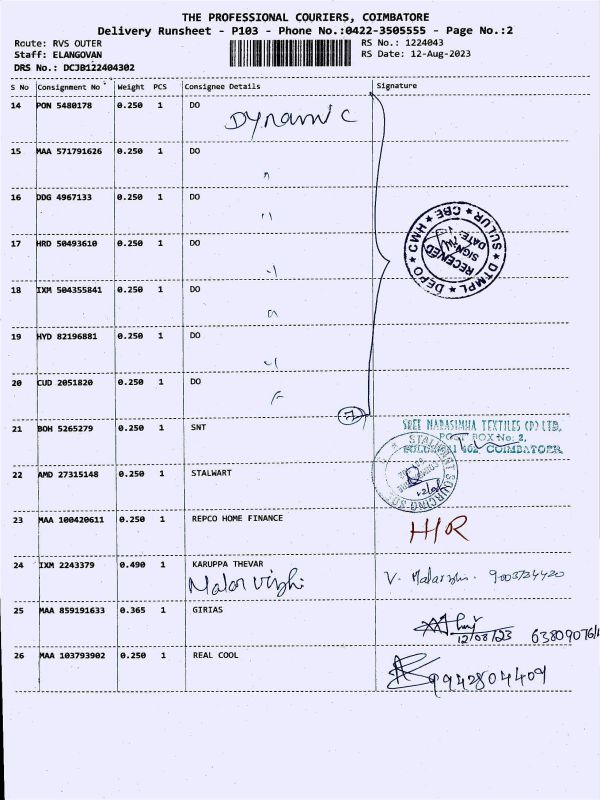 THE PROFESSIONAL COURIERS, COIMBATORE
Delivery Runsheet - P103 - Phone No.:0422-3505555 - Page No.:2
Route: RVS OUTER
Staff: ELANGOVAN
DRS No.: DCJB122404302
RS No.: 1224043
RS Date: 12-Aug-2023
S No Consignment No Weight PCS Consignee Details Signature
14 PON 5480178 0.250 1 DO
Dynamic
15 MAA 571791626 0.250 1 DO
16 DDG 4967133 0.250 1 DO
17 HRD 50493610 0.250 1 DO
18 IXM 504355841 0.250 1 DO
19 HYD 82196881 0.250 1 DO
20 CUD 2051820 0.250 1 DO
7
DTMPL ★ DEPO ★ CWH ★ CBE ★ SULUR ★
RECEIVED
SIGN
DATE:
21 BOH 5265279 0.250 1 SNT
SREE NARASIMHA TEXTILES (P) LTD,
POST BOX No: 2,
402, COIMBATORE
22 AMD 27315148 0.250 1 STALWART
STALWART SOURCING
23 MAA 100420611 0.250 1 REPCO HOME FINANCE
H/R
24 IXM 2243379 0.490 1 KARUPPA THEVAR
Malar vizhi
V. Malarvizhi.
25 MAA 859191633 0.365 1 GIRIAS
12/08/23
26 MAA 103793902 0.250 1 REAL COOL
9942804409